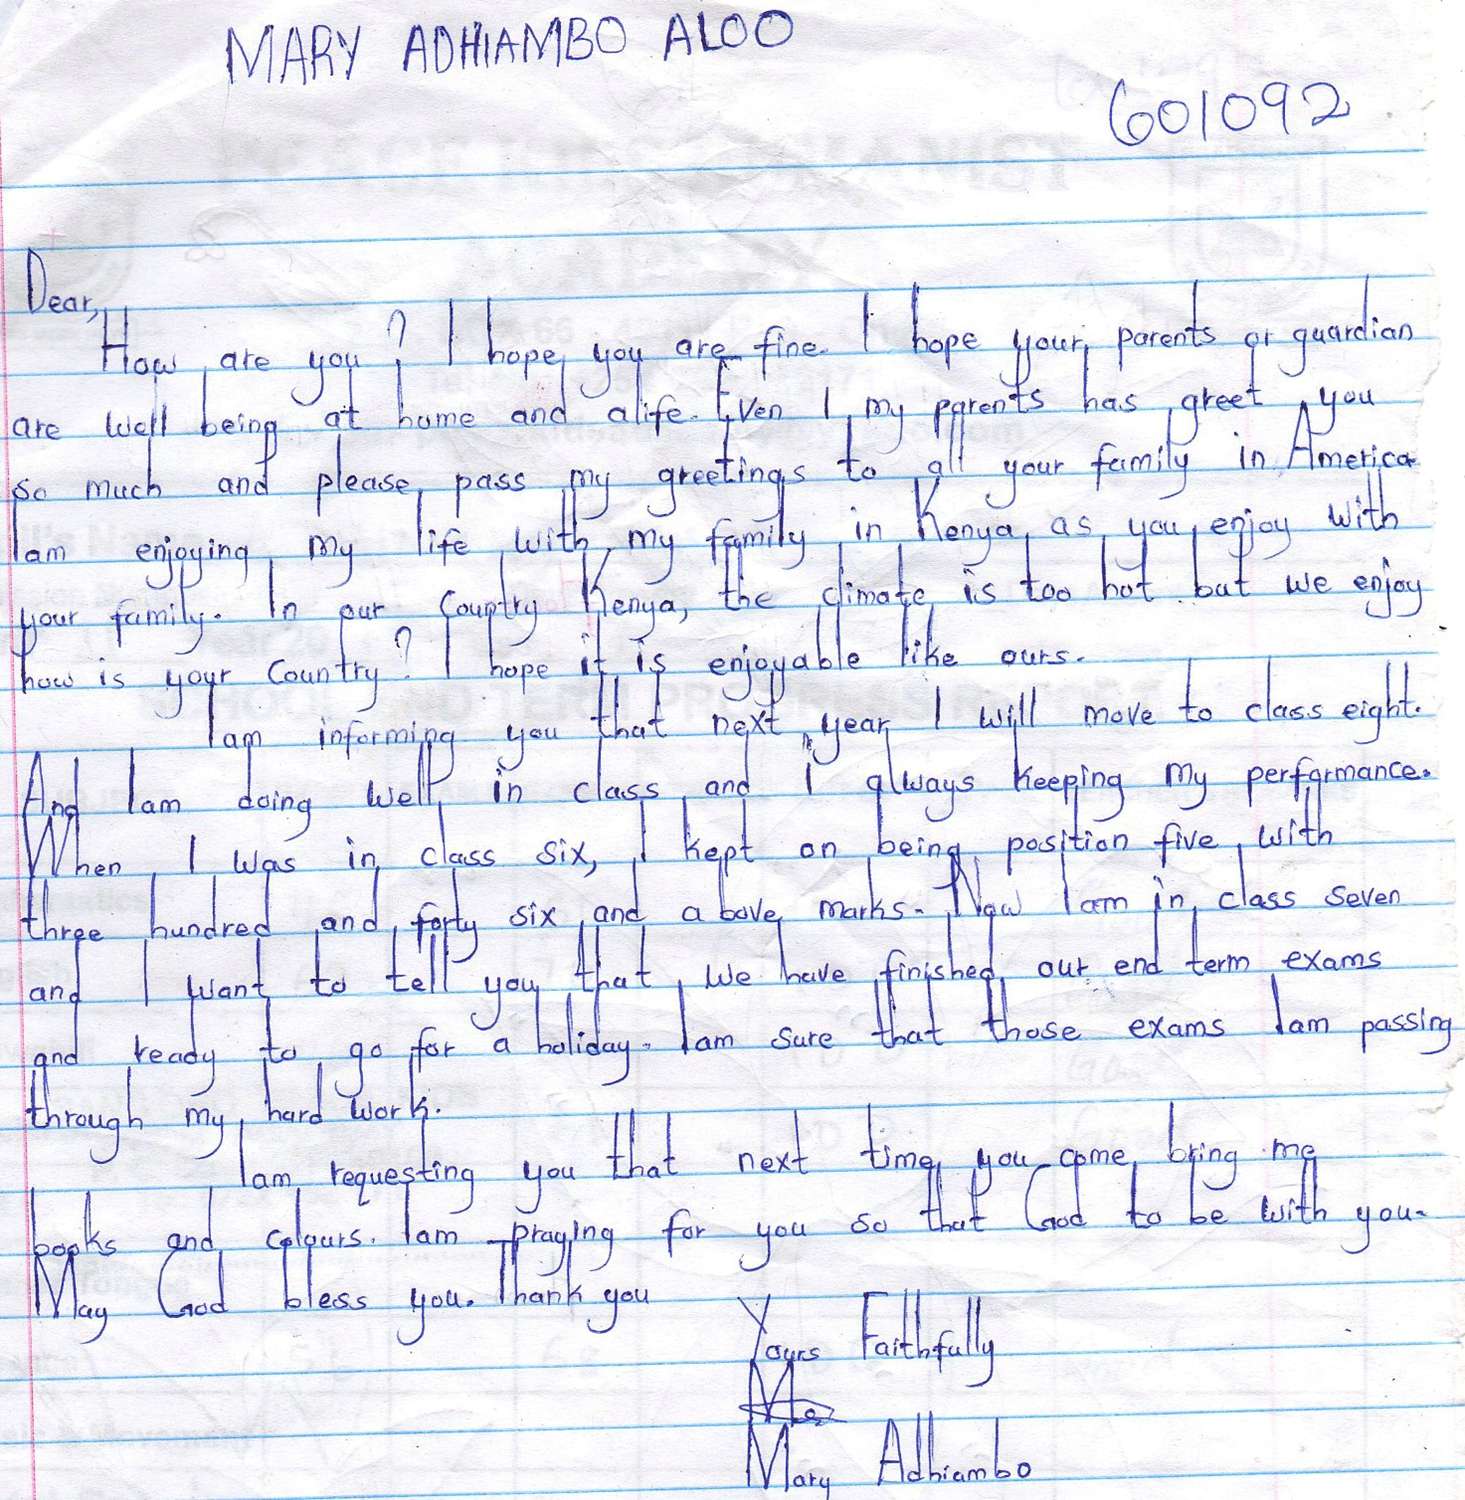 MARY ADHIAMBO ALOO
601092
Dear,
How are you? I hope you are fine. I hope your parents or guardian
are well being at home and alife. Even I my parents has greet you
so much and please pass my greetings to all your family in America
Iam enjoying my life with my family in Kenya as you enjoy with
your family. In our Country Kenya, the climate is too hot but we enjoy
how is your Country? I hope it is enjoyable like ours.
Iam informing you that next year I will move to class eight.
And Iam doing well in class and i always keeping my performance.
When I was in class six, I kept on being position five with
three hundred and forty six and above marks. Now Iam in class seven
and I want to tell you that we have finished our end term exams
and ready to go for a holiday. Iam sure that those exams Iam passing
through my hard work.
Iam requesting you that next time you come bring me
books and colours. Iam praying for you so that God to be with you.
May God bless you. Thank you
Yours Faithfully
Mary Adhiambo